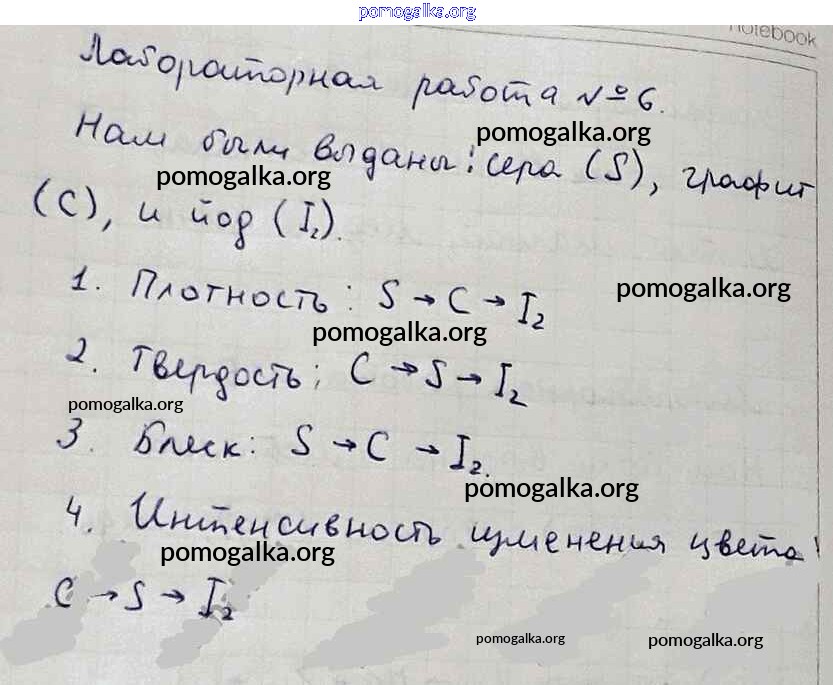 pomogalka.org
notebook
Лабораторная работа №6.
Нам были выданы: сера (S), графит
pomogalka.org
pomogalka.org
(C), и йод (I₂).
1. Плотность: S → C → I₂
pomogalka.org
pomogalka.org
2. Твердость: C → S → I₂
pomogalka.org
3. Блеск: S → C → I₂.
pomogalka.org
4. Интенсивность изменения цвета:
pomogalka.org
C → S → I₂
pomogalka.org
pomogalka.org